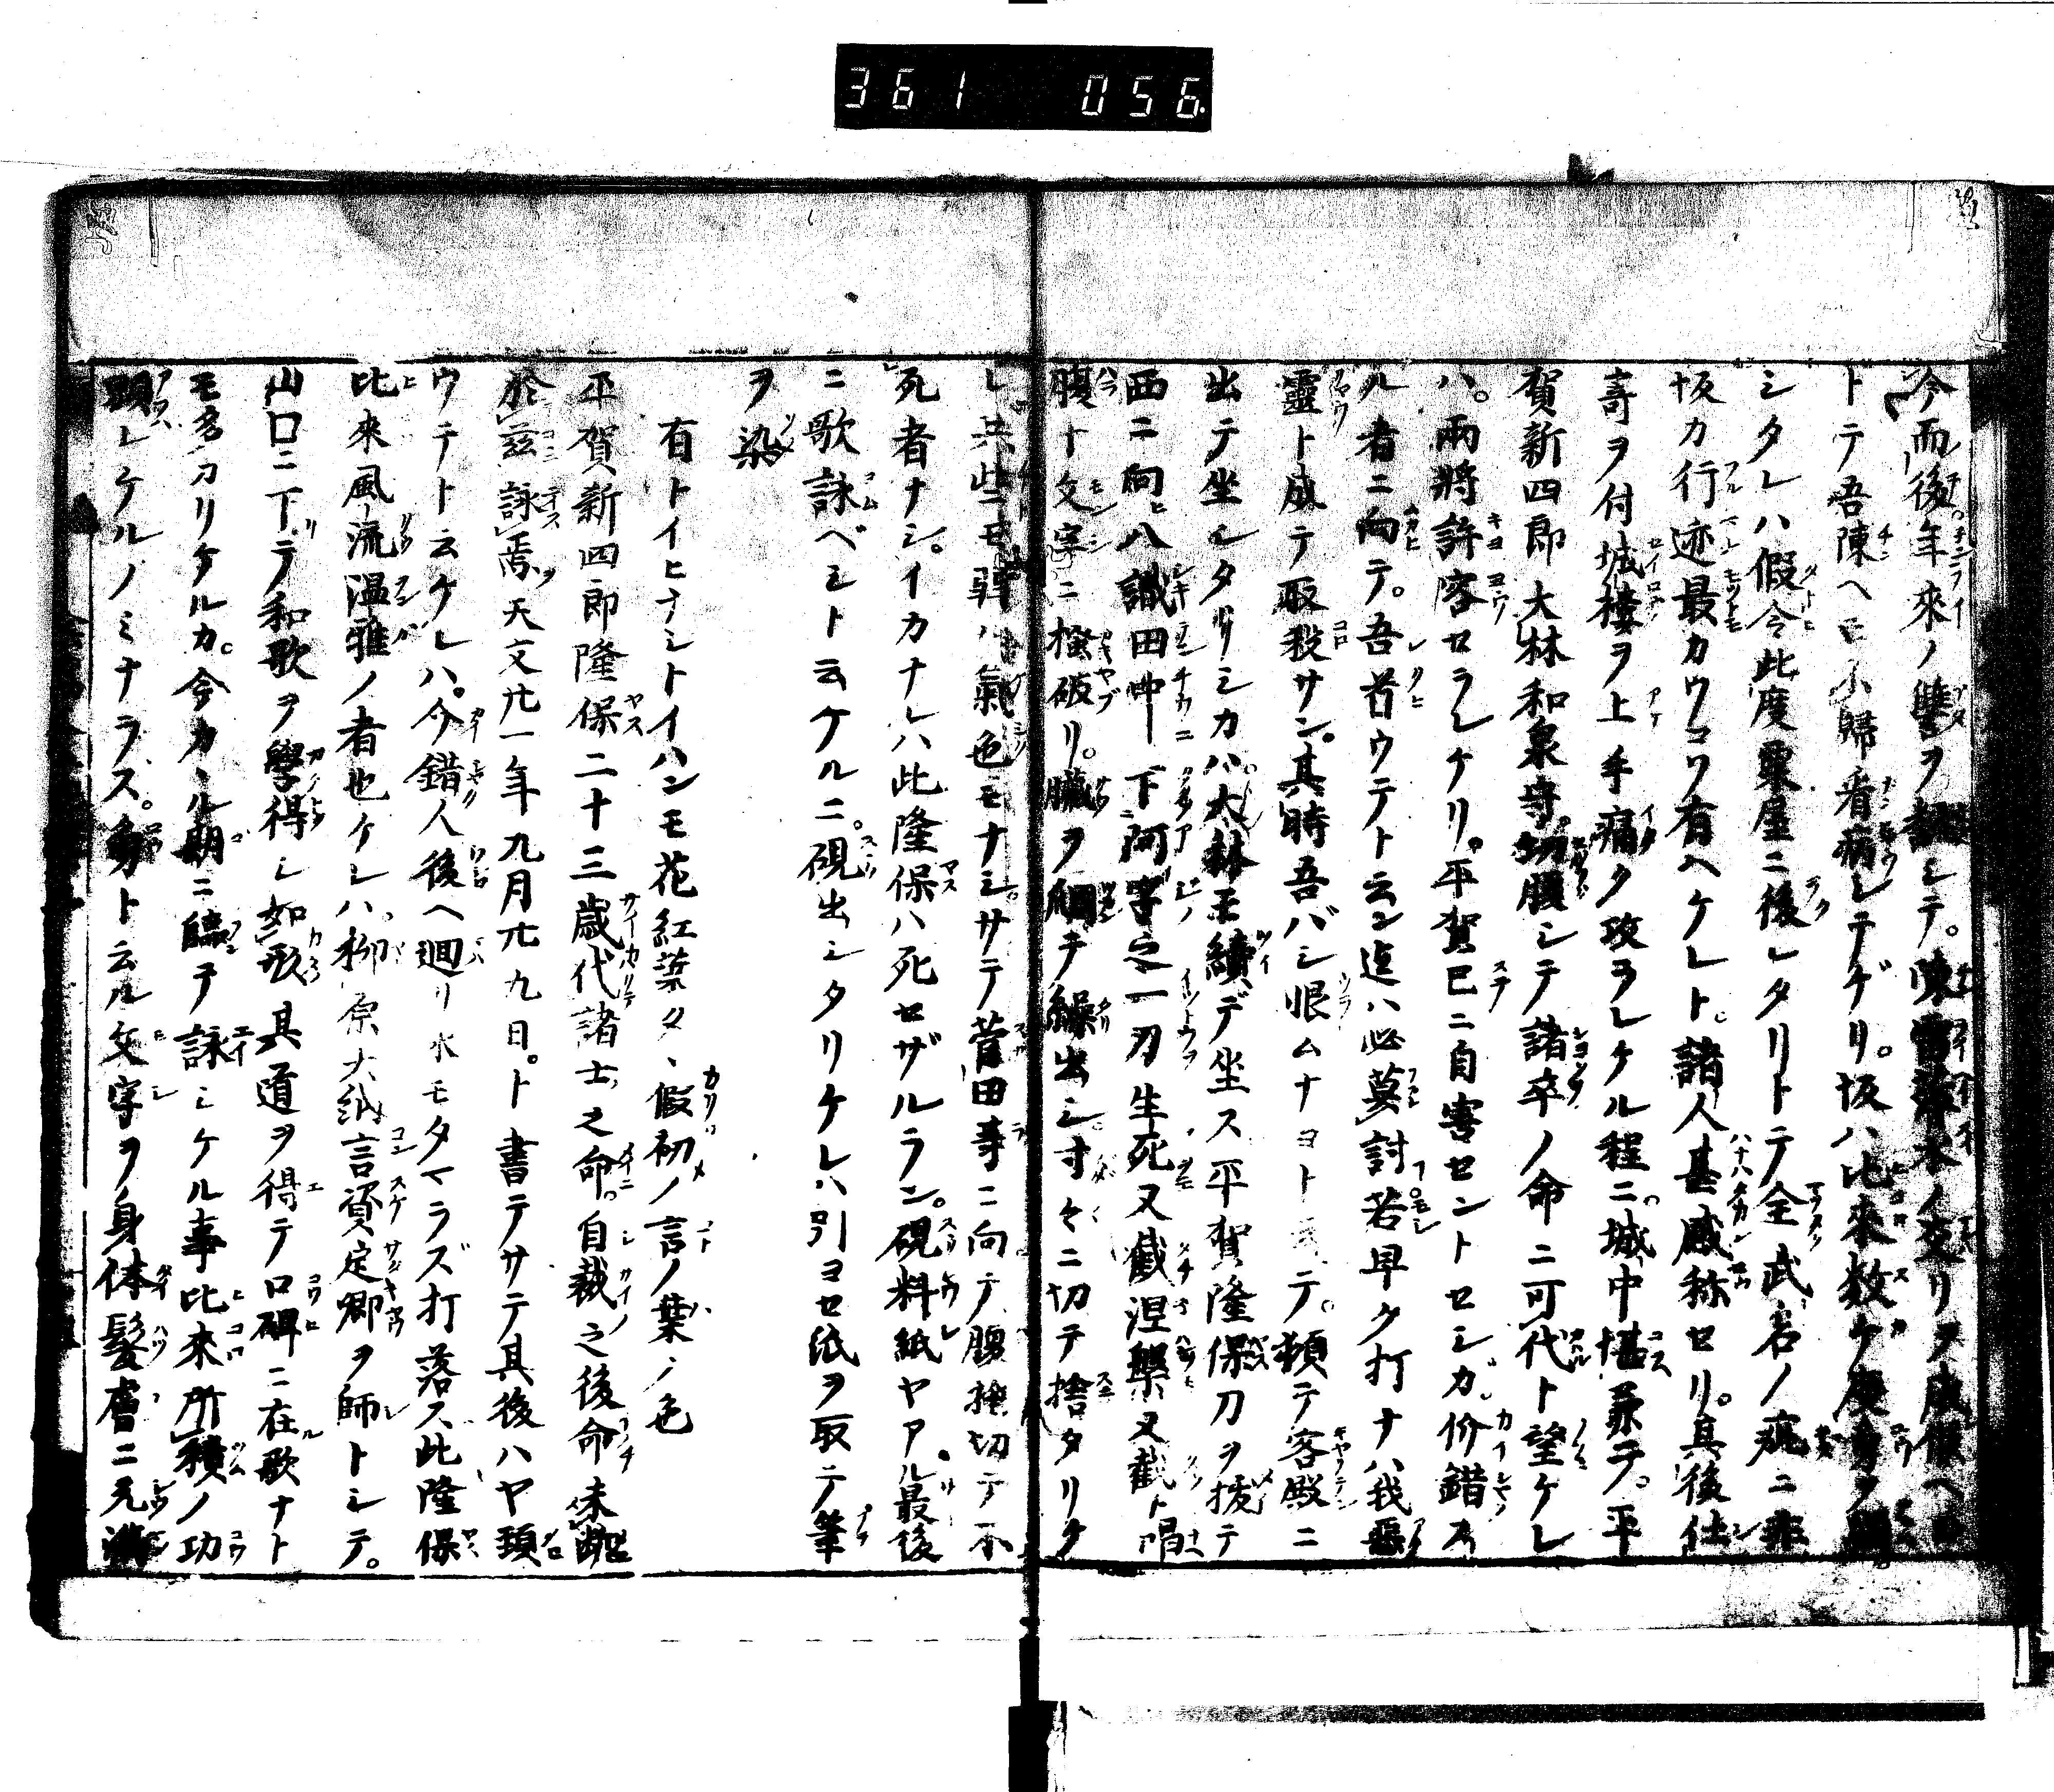 361 056
今而後年來ノ讐ヲ翻シテ。陳雷ノ交リヲ成候ヘ
トテ吾陳ヘニ小歸看病シテゲリ。坂ハ比來数ケ度
シタレハ假令此度粟屋ニ後レタリトテ全武名ノ疵ニ非
坂カ行迹最カウコソ有ヘケレト。諸人甚感称セリ。其後仕
寄ヲ付城樓ヲ上手痛ク攻ヲレケル程ニ城中堪兼テ。平
賀新四郎大林和泉守切腹シテ諸卒ノ命ニ可代ト望ケレ
ハ。兩將許容セラレケリ。平賀已ニ自害セントセシガ。价錯ス
ル者ニ向テ。吾首ウテト云ン迠ハ必莫討若早ク打ナハ我惡
靈ト成テ取殺サン。其時吾バシ恨ムナヨト云テ。頓テ客殿ニ
出テ坐シタリシカハ大林モ續デ坐ス平賀隆保刀ヲ拔テ
西ニ向ヒ八識田中下阿字之一刃生死又截涅槃又截ト唱
腹十文字ニ搔破リ。臓ヲ掴テ繰出シ寸々ニ切テ捨タリケ
レ共些モ弱ハ氣色モナシ。サテ菅田事ニ向テ腹搔切テ不
死者ナシ。イカナレハ此隆保ハ死セザルラン。硯料紙ヤアル最後
ニ歌詠ベシト云ケルニ。硯出シタリケレハ引ヨセ紙ヲ取テ筆
ヲ染
有トイヒナシトイハンモ花紅葉タヽ假初ノ言ノ葉ノ色
平賀新四郎隆保二十三歳代諸士之命。自裁之後命未断
於茲詠焉天文廿一年九月廿九日。ト書テサテ其後ハヤ頚
ウテト云ケレハ。今錯人後ヘ廻リ水モタマラズ打落ス此隆保
比來風流温雅ノ者也ケレハ柳原大納言資定卿ヲ師トシテ。
山口ニ下テ和歌ヲ學得シ如形其道ヲ得テ口碑ニ在歌ナト
モ多カリケルカ。今カヽル期ニ臨テ詠シケル事比來所積ノ功
顕レケルノミナラス。勇ト云ル文字ヲ身体髪膚ニ充満